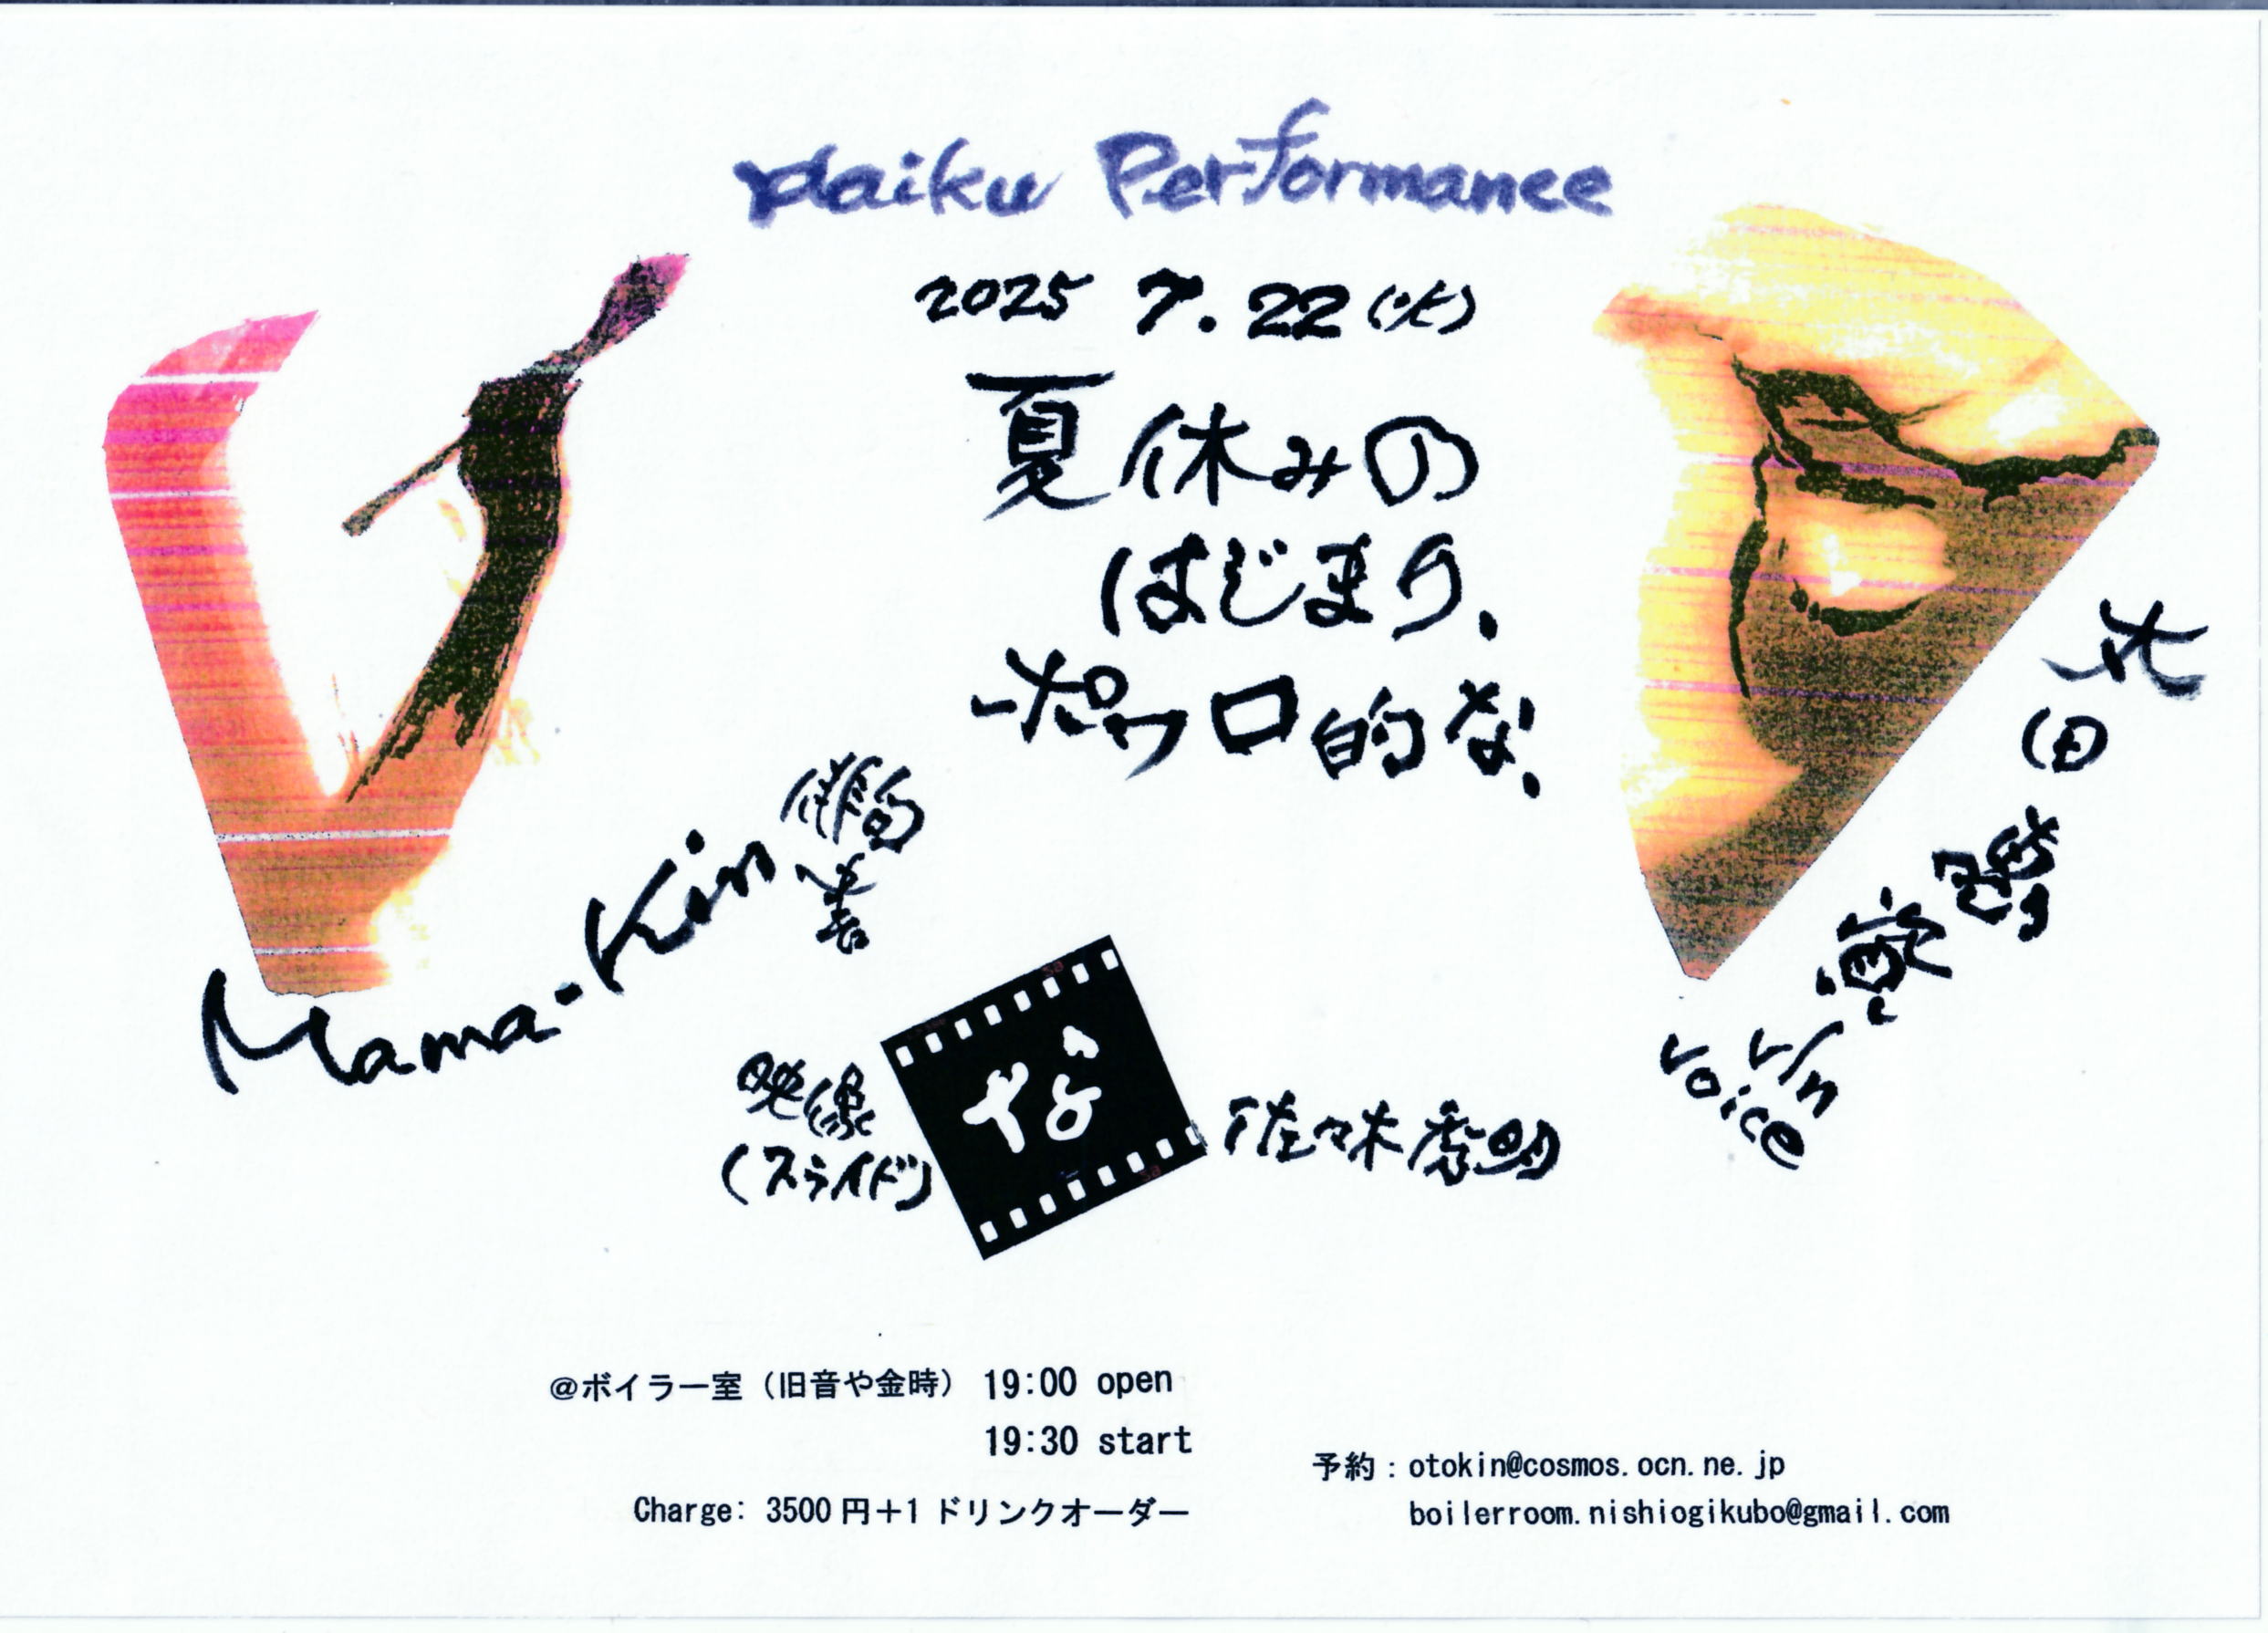 Haiku Performance
2025 7.22(火)
夏休みの
はじまり、
ポワロ的な、
Mama-Kin
俳句
書
映像
(スライド)
な
佐々木秀明
太田
惠資
vin
voice
@ボイラー室（旧音や金時） 19:00 open
19:30 start
Charge: 3500円＋1ドリンクオーダー
予約：otokin@cosmos.ocn.ne.jp
boilerroom.nishiogikubo@gmail.com